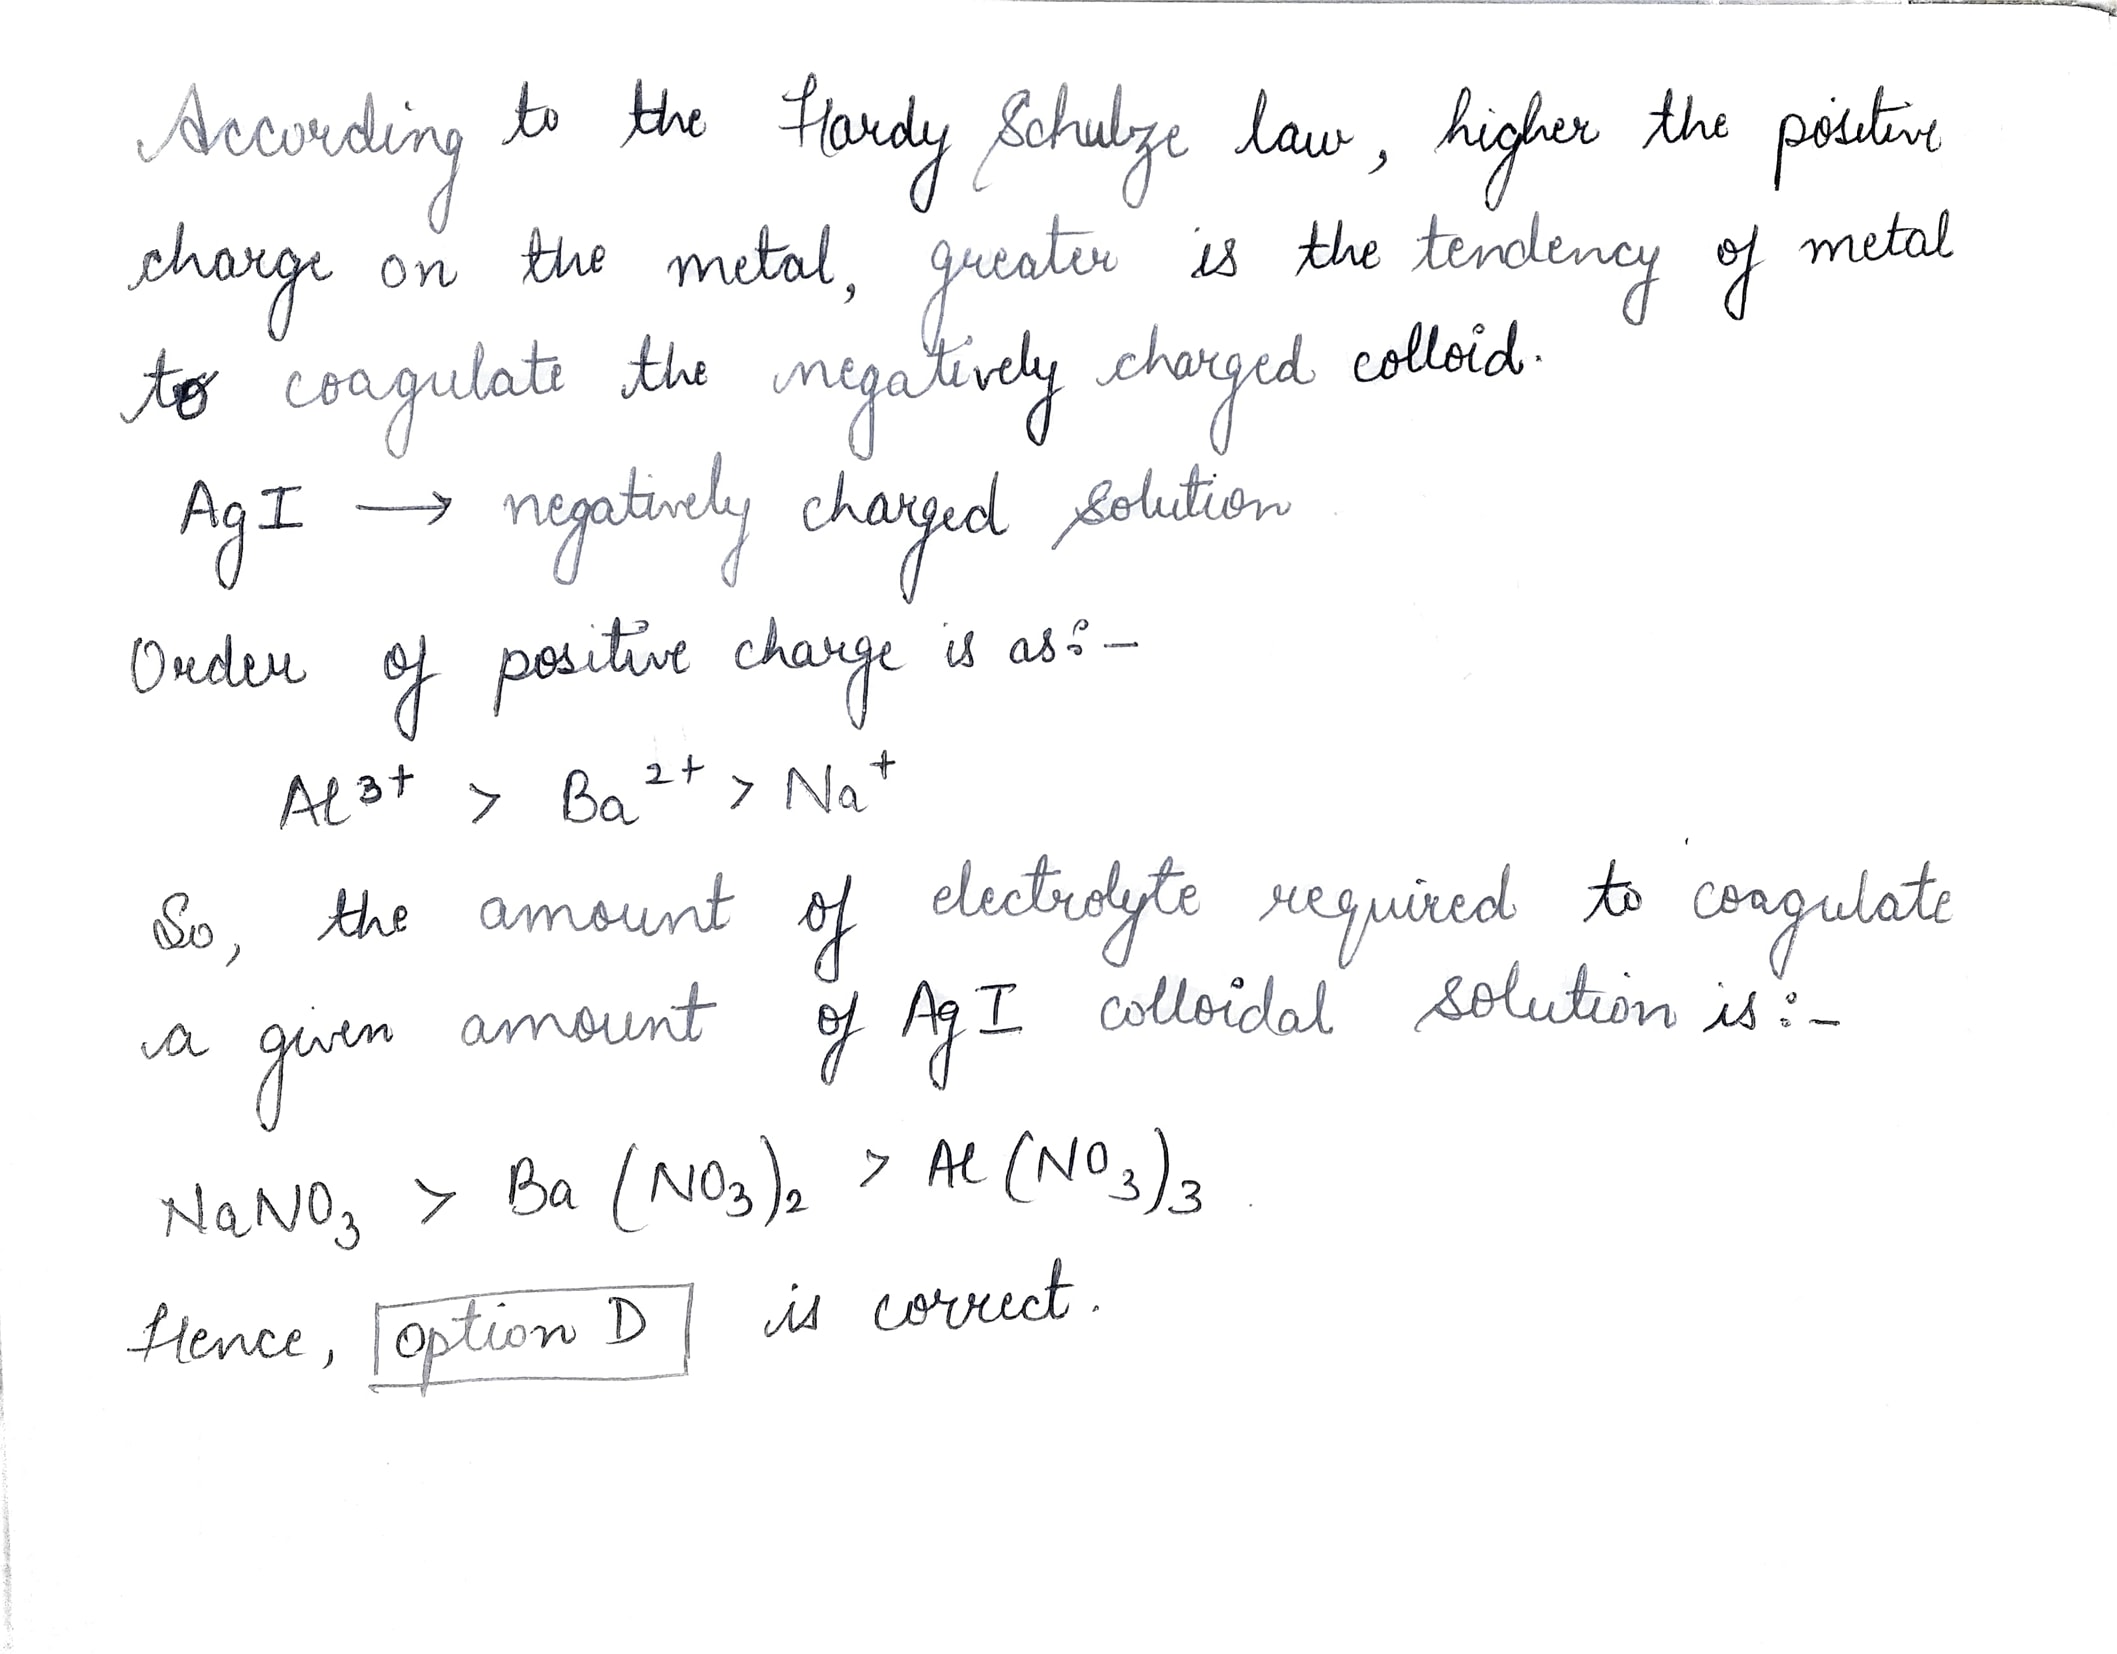 According to the Hardy Schulze law, higher the positive
charge on the metal, greater is the tendency of metal
to coagulate the negatively charged colloid.
AgI → negatively charged solution
Order of positive charge is as:-
Al³⁺ > Ba²⁺ > Na⁺
So, the amount of electrolyte required to coagulate
a given amount of AgI colloidal solution is:-
NaNO₃ > Ba(NO₃)₂ > Al(NO₃)₃.
Hence, option D is correct.